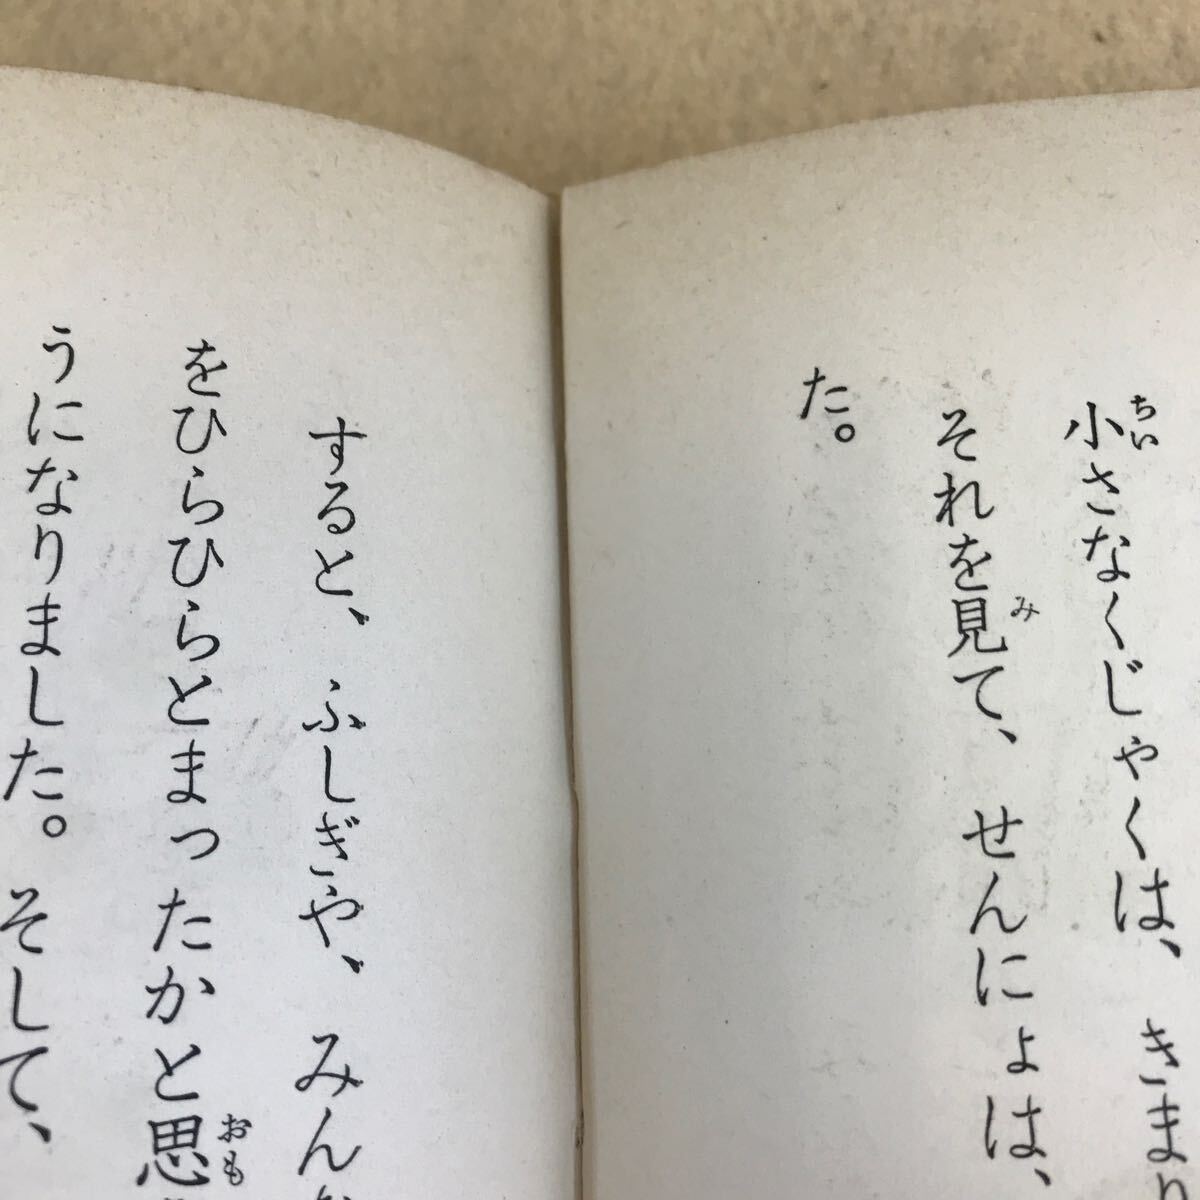 小さなくじゃくは、きまり
それを見て、せんにょは、
た。
すると、ふしぎや、みんな
をひらひらとまったかと思
うになりました。そして、